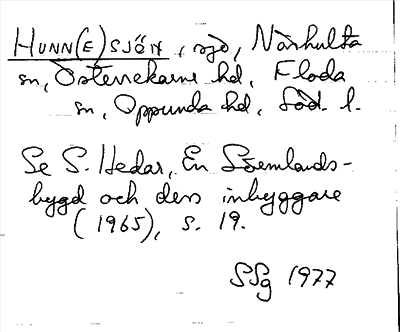 HUNN(E)SJÖN, sjö, Nåshulta
sn, Österrekarne hd, Floda
sn, Oppunda hd, Söd. l.
Se S. Hedar, En Sörmlands-
bygd och dess inbyggare
(1965), s. 19.
SSg 1977